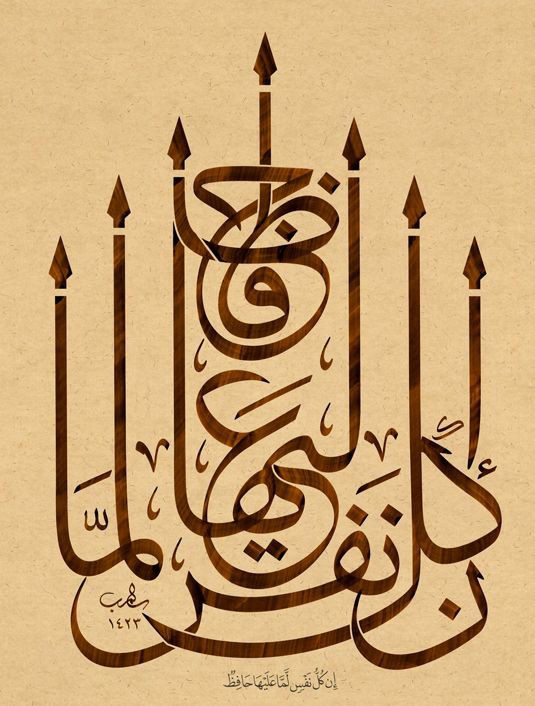 إِن كُلُّ نَفْسٍ لَّمَّا عَلَيْهَا حَافِظٌ
١٤٢٣
إِن كُلُّ نَفْسٍ لَّمَّا عَلَيْهَا حَافِظٌ